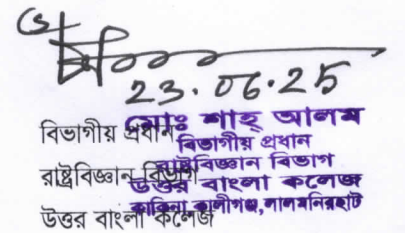 23.06.25
বিভাগীয় প্রধান
রাষ্ট্রবিজ্ঞান বিভাগ
উত্তর বাংলা কলেজ
মোঃ শাহ্ আলম
বিভাগীয় প্রধান
রাষ্ট্রবিজ্ঞান বিভাগ
উত্তর বাংলা কলেজ
কাকিনা, কালীগঞ্জ, লালমনিরহাট